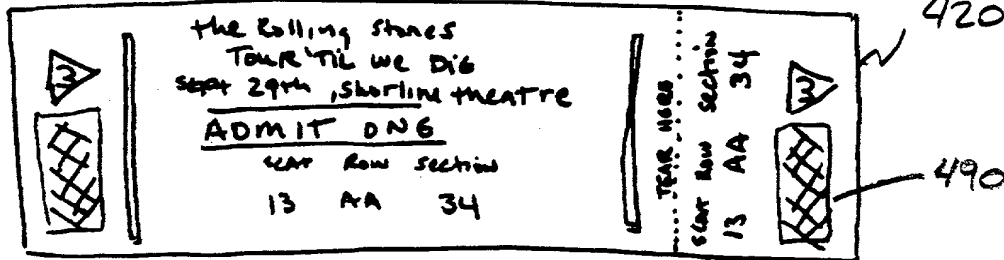 the Rolling Stones
TOUR 'TIL WE DIE
Sept 29th, Shorline theatre
ADMIT ONE
SEAT ROW Section
13 AA 34
TEAR HERE
SEAT ROW Section
13 AA 34
420
490